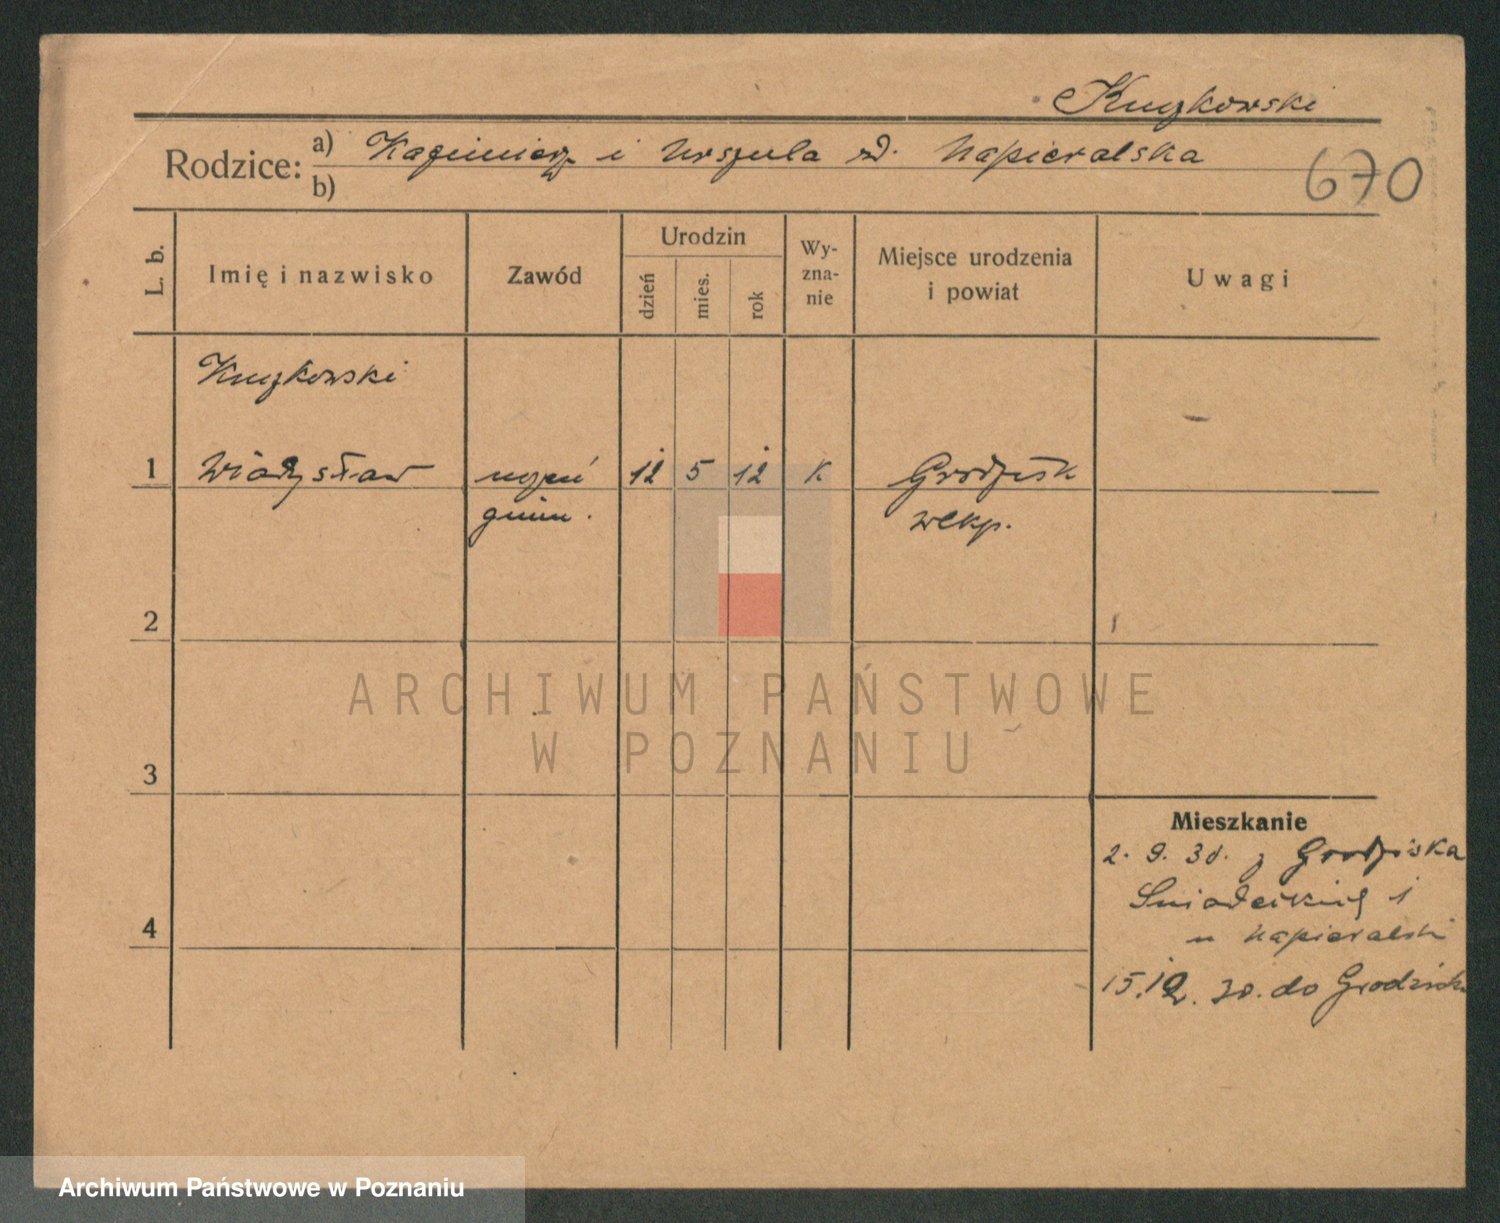 Knuzkowski
Rodzice: a) Kazimierz i Urszula zd. Napieralska
b)
670
L. b.
Imię i nazwisko
Zawód
Urodzin
dzień
mies.
rok
Wy-
zna-
nie
Miejsce urodzenia
i powiat
Uwagi
Knuzkowski
1 Władysław uczeń 12 5 12 K Grodzisk
gimn. wlkp.
2
ARCHIWUM PAŃSTWOWE
W POZNANIU
3
Mieszkanie
2. 9. 30. z Grodziska
Śniadeckich 1
u Napieralski
4
15.12. 30. do Grodziska
Archiwum Państwowe w Poznaniu